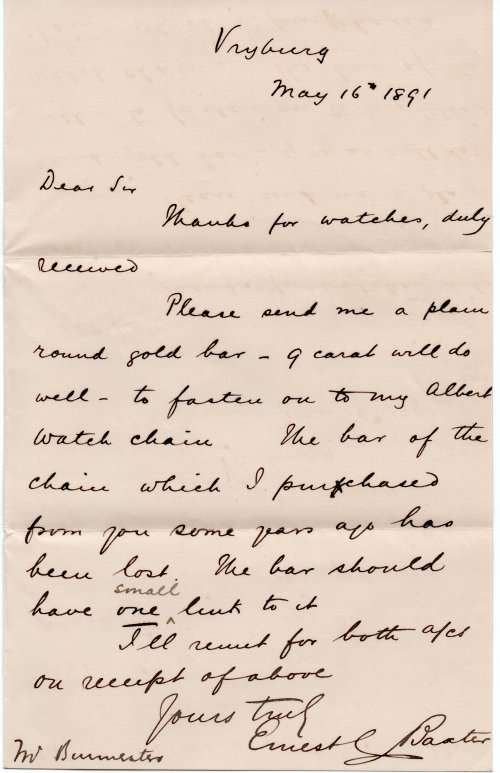 Vryburg
May 16th 1891
Dear Sir
Thanks for watches, duly
received
Please send me a plain
round gold bar – 9 carat will do
well – to fasten on to my Albert
watch chain The bar of the
chain which I purchased
from you some years ago has
been lost The bar should
small
have one link to it
I'll remit for both a/cs
on receipt of above
Yours truly
Ernest C Baxter
Mr Burmester